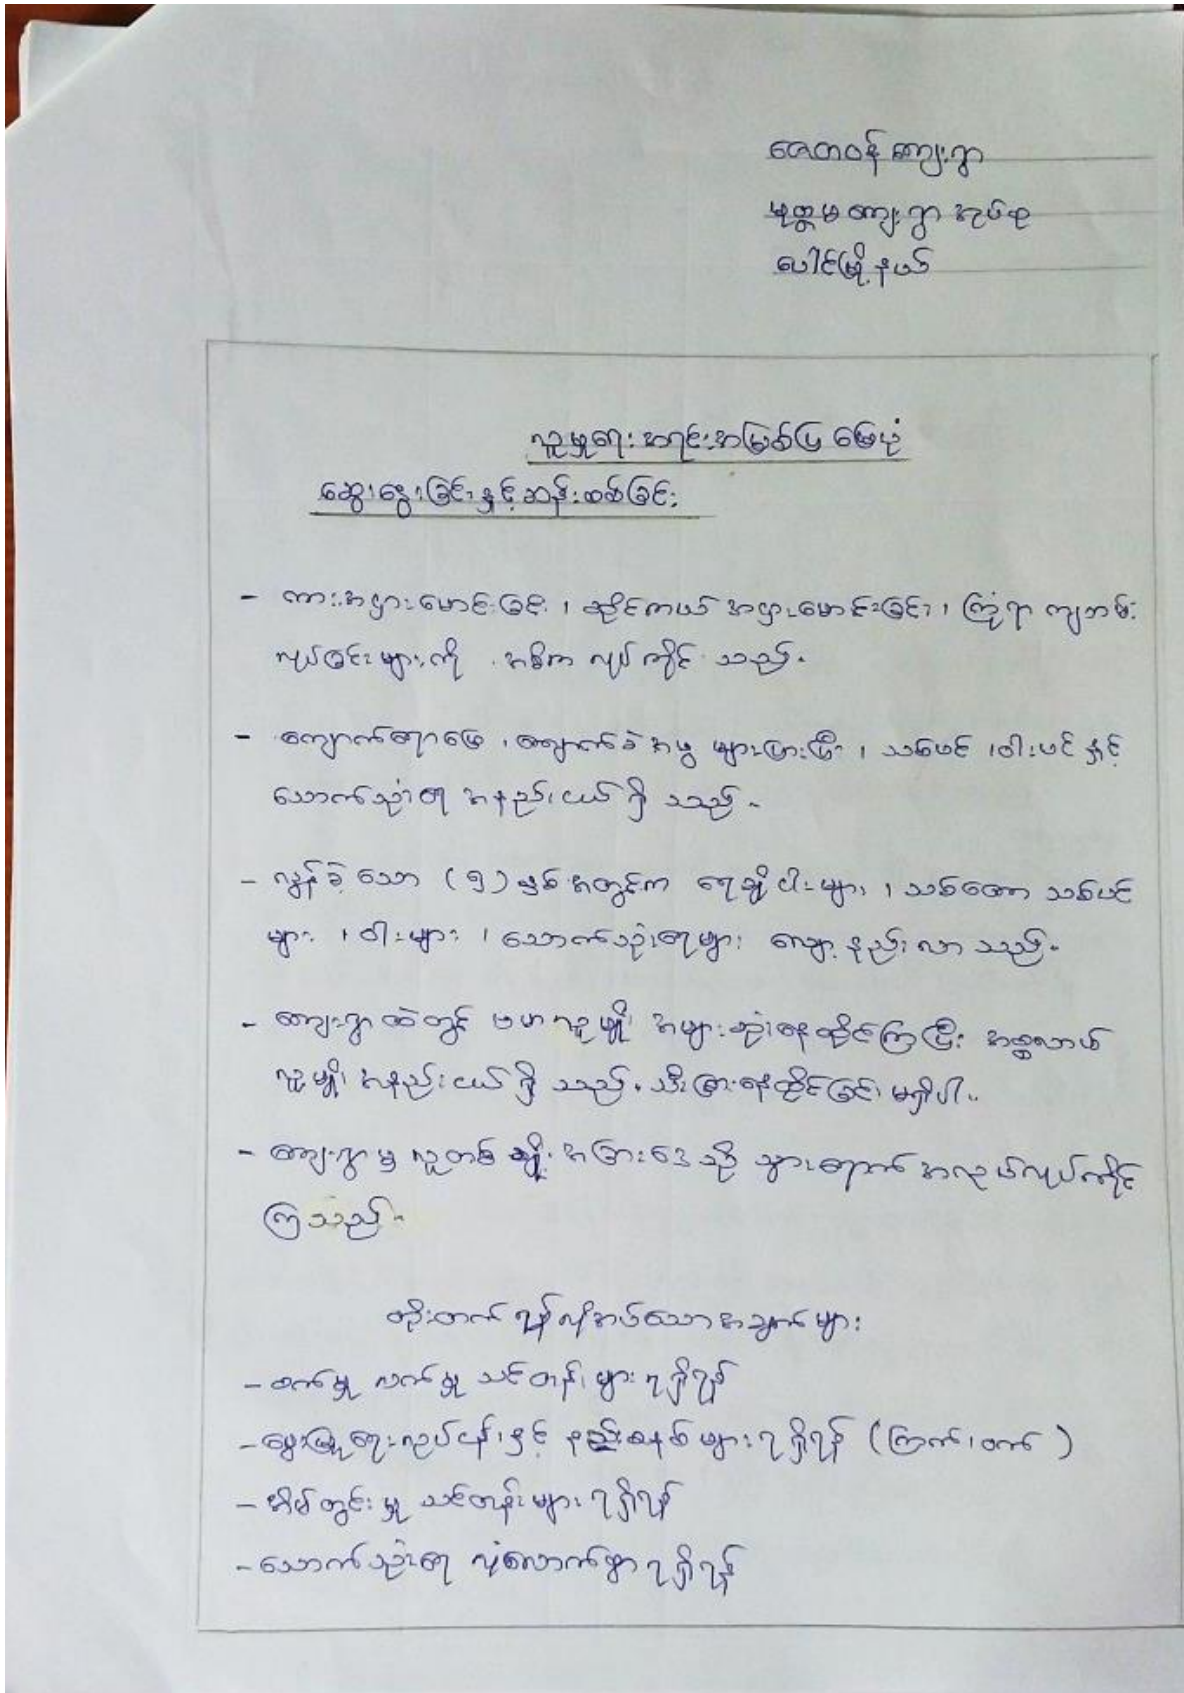 ဇေတဝန်ကျေးရွာ
မုတ္တမကျေးရွာအုပ်စု
ပေါင်မြို့နယ်
လူမှုရေးအရင်းအမြစ်ပြမြေပုံ
ဆွေးနွေးခြင်းနှင့်ဆန်းစစ်ခြင်း
- ကားအငှားမောင်းခြင်း ၊ ဆိုင်ကယ်အငှားမောင်းခြင်း ၊ ကြုံရာကျဘမ်း
လုပ်ခြင်းများကို အဓိကလုပ်ကိုင်သည်။
- ကျောက်တောမြေ ၊ ကျောက်ခဲအမှု များပြားပြီး ၊ သစ်ပင် ၊ ဝါးပင်နှင့်
သောက်သုံးရေ အနည်းငယ်ရှိသည်။
- လွန်ခဲ့သော (၅) နှစ်အတွင်းက ရေချိုငါးများ ၊ သစ်တော သစ်ပင်
များ ၊ ဝါးများ ၊ သောက်သုံးရေများ လျော့နည်းလာသည်။
- ကျေးရွာထဲတွင် ဗမာလူမျိုး အများဆုံးနေထိုင်ကြပြီး အစ္စလာမ်
လူမျိုး အနည်းငယ်ရှိသည်။ သီးခြားနေထိုင်ခြင်း မရှိပါ။
- ကျေးရွာမှ လူတစ်ချို့ အခြားဒေသသို့ သွားရောက်အလုပ်လုပ်ကိုင်
ကြသည်။
တိုးတက်ရန်လိုအပ်သောအချက်များ
- စက်မှု လက်မှု သင်တန်းများရရှိရန်
- မွေးမြူရေးလုပ်ငန်းနှင့် နည်းစနစ်များရရှိရန် (ကြက်၊ ဝက်)
- အိမ်တွင်းမှု သင်တန်းများရရှိရန်
- သောက်သုံးရေ လုံလောက်စွာရရှိရန်